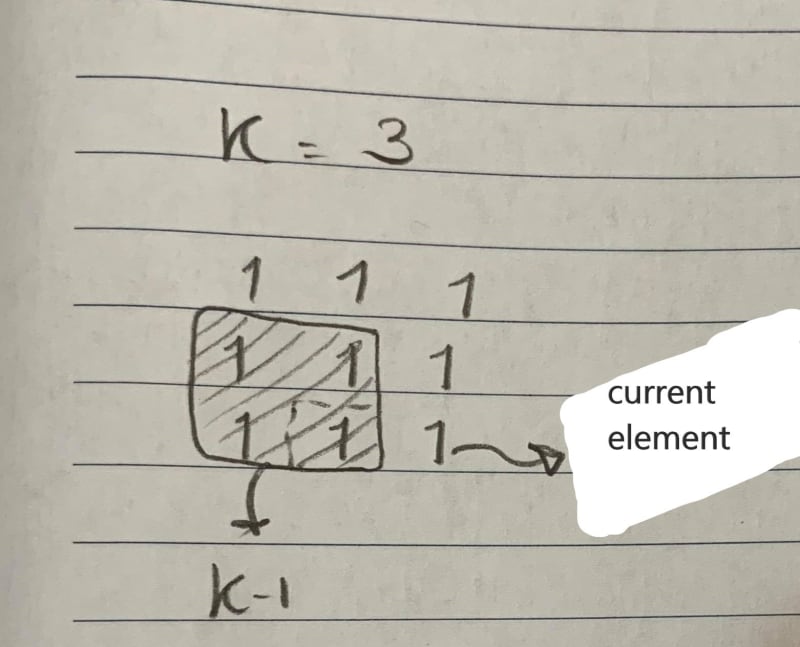 K = 3
1 1 1
1 1 1
1 1 1
current
element
K-1